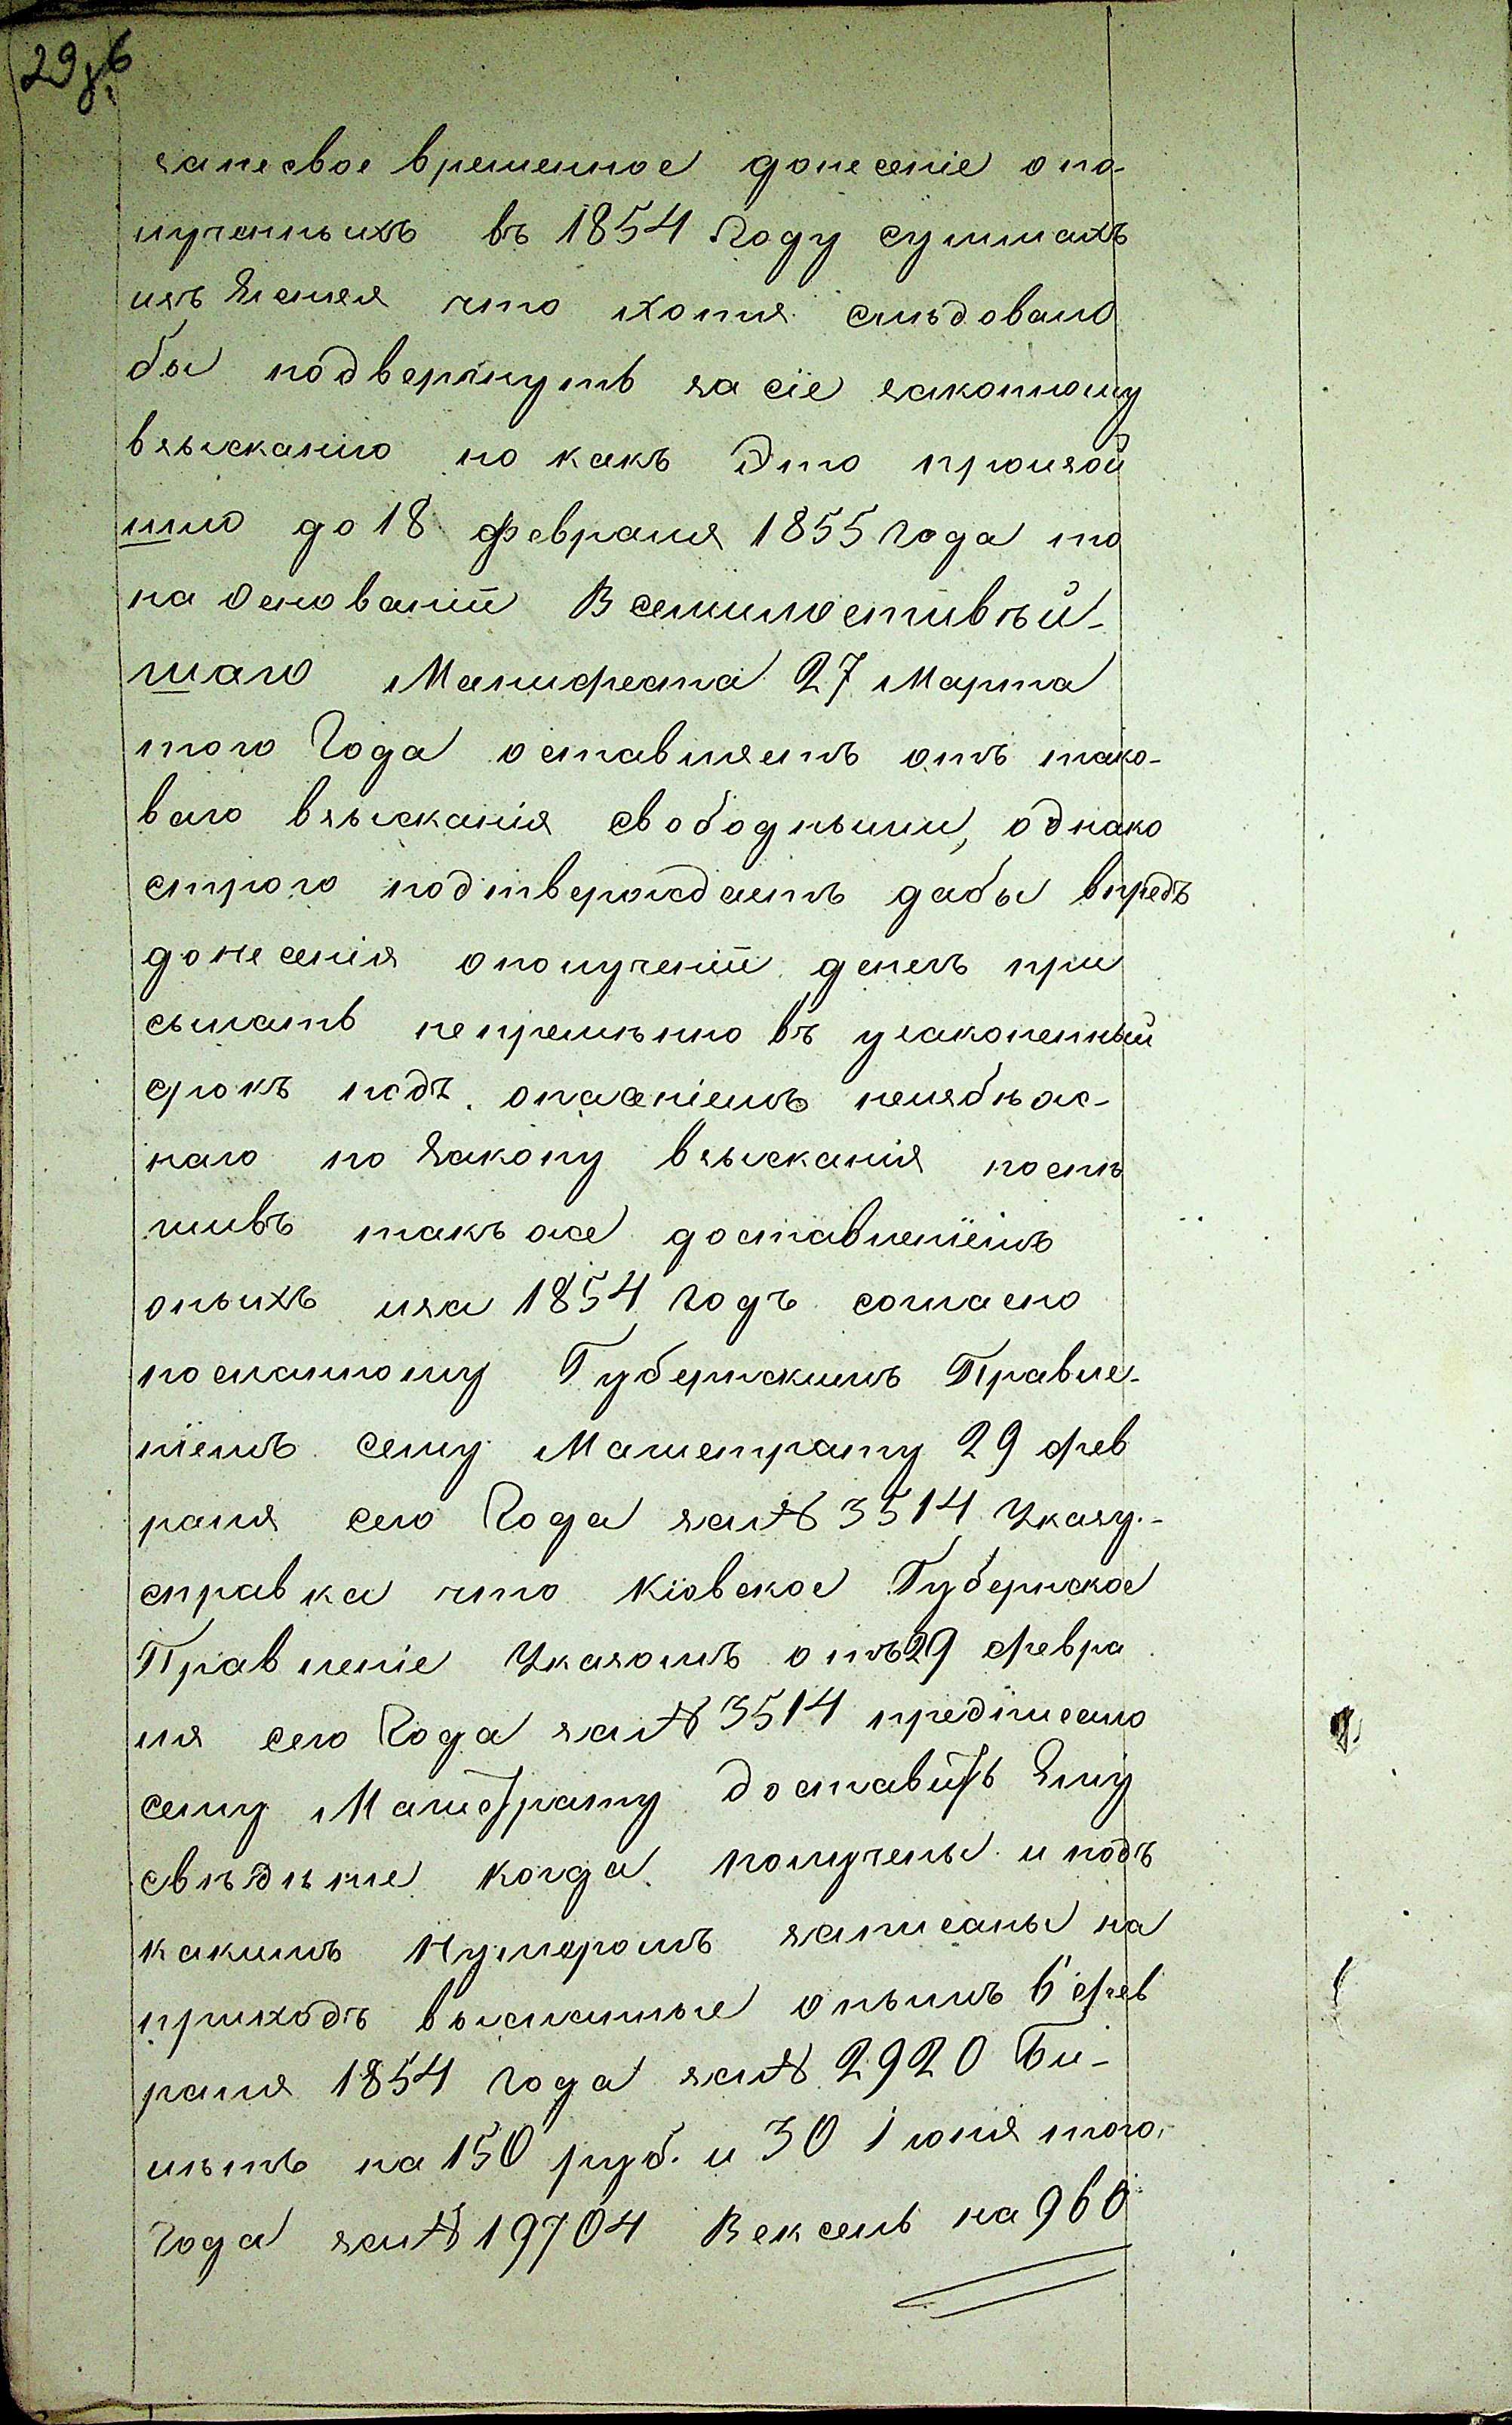 29 зв
за несвое временное донесеніе о по-
лученныхъ въ 1854 году суммахъ
изъясняя что хотя слѣдовало
бы подвергнуть за сіе законному
взысканію но какъ Это произой
шло до 18 февраля 1855 года то
на основаніи Всемилостивѣй-
шаго Манифеста 27 Марта
того Года оставляетъ отъ тако-
ваго взысканія свободными, однако
строго подтверждаетъ дабы впредь
донесенія ополученіи денегъ при
сылать непремѣнно въ узаконенный
срокъ подъ опасеніемъ неизбѣж-
наго по Закону взысканія поспѣ
шивъ такъ же доставленіемъ
оныхъ иза 1854 годъ согласно
посланному Губернскимъ Правле-
ніемъ сему Магистрату 29 фев
раля сего Года за № 3514 Указу.-
справка что Кіовское Губернское
Правленіе Указомъ отъ 29 февра
ля сего Года за № 3514 предписано
сему Магистрату доставить Ему
свѣдѣніе когда получены и подъ
какимъ Нумеромъ записаны на
приходъ высланные онымъ 6 фев
раля 1854 года за № 2920 Би-
летъ на 150 руб. и 30 Іюнія того
Года за № 19704 Вексель на 960